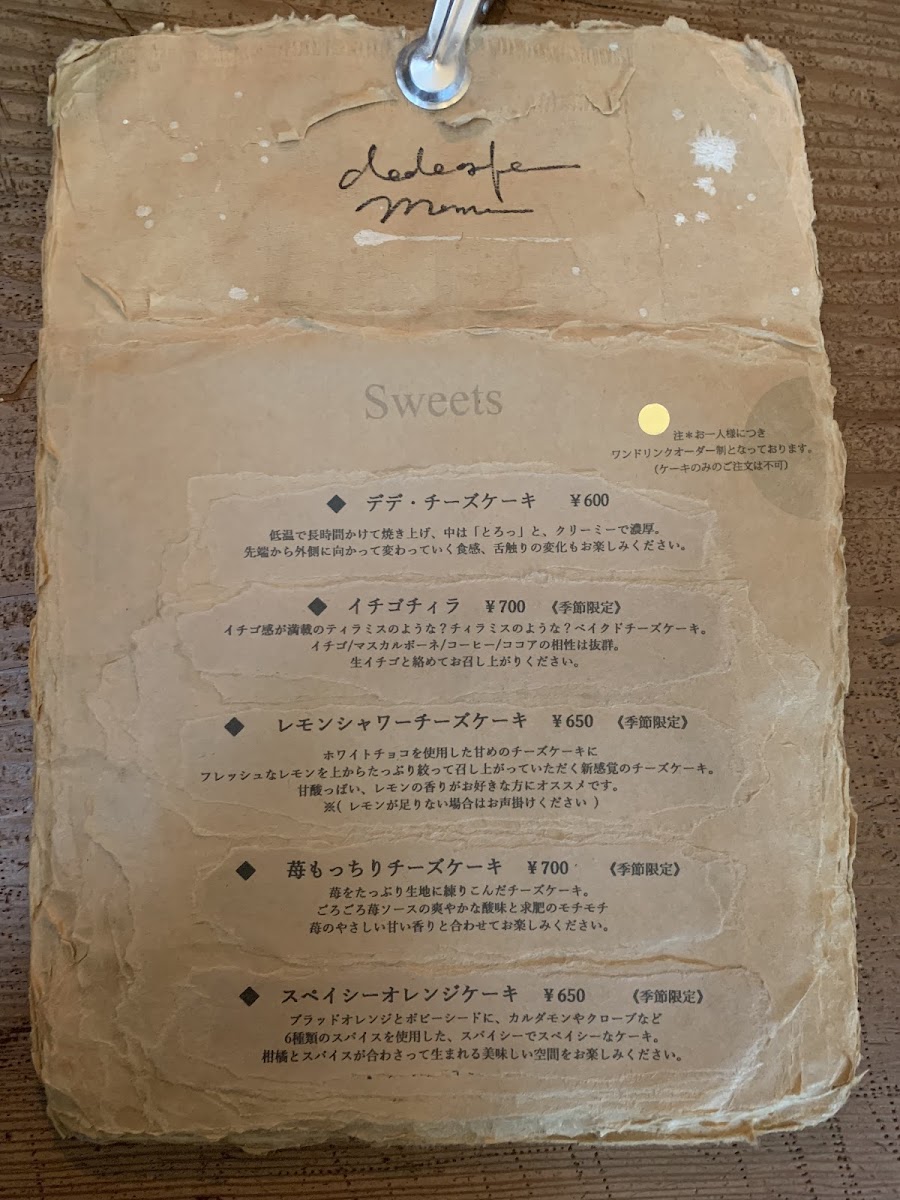 dedecafe
menu
Sweets
注＊お一人様につき
ワンドリンクオーダー制となっております。
(ケーキのみのご注文は不可)
◆ デデ・チーズケーキ ￥600
低温で長時間かけて焼き上げ、中は「とろっ」と、クリーミーで濃厚。
先端から外側に向かって変わっていく食感、舌触りの変化もお楽しみください。
◆ イチゴチィラ ￥700 《季節限定》
イチゴ感が満載のティラミスのような？チィラミスのような？ベイクドチーズケーキ。
イチゴ/マスカルポーネ/コーヒー/ココアの相性は抜群。
生イチゴと絡めてお召し上がりください。
◆ レモンシャワーチーズケーキ ￥650 《季節限定》
ホワイトチョコを使用した甘めのチーズケーキに
フレッシュなレモンを上からたっぷり絞って召し上がっていただく新感覚のチーズケーキ。
甘酸っぱい、レモンの香りがお好きな方にオススメです。
※( レモンが足りない場合はお声掛けください )
◆ 苺もっちりチーズケーキ ￥700 《季節限定》
苺をたっぷり生地に練りこんだチーズケーキ。
ごろごろ苺ソースの爽やかな酸味と求肥のモチモチ
苺のやさしい甘い香りと合わせてお楽しみください。
◆ スペイシーオレンジケーキ ￥650 《季節限定》
ブラッドオレンジとポピーシードに、カルダモンやクローブなど
6種類のスパイスを使用した、スパイシーでスペイシーなケーキ。
柑橘とスパイスが合わさって生まれる美味しい空間をお楽しみください。